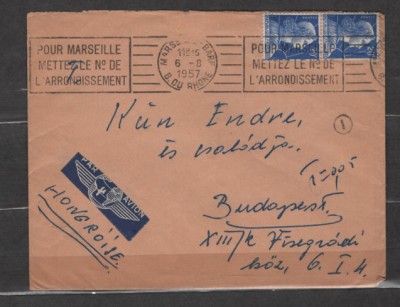 POUR MARSEILLE
METTEZ LE Nº DE
L'ARRONDISSEMENT
MARSEILLE-GARE
6 - 8
1957
B. DU RHONE
POUR MARSEILLE
METTEZ LE Nº DE
L'ARRONDISSEMENT
Kun Endre,
és családja.
1
PAR AVION
HONGRIJE.
Budapest.
XIII/k Visegrádi
köz, 6. I. 4.